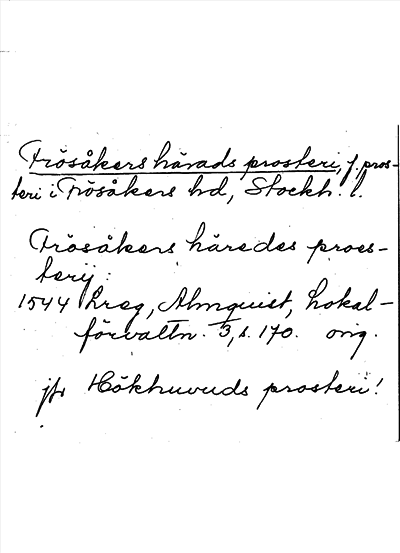 Frösåkers härads prosteri, f. pros-
teri i Frösåkers hd, Stockh. l.
Frösåkers häredes proes-
terij:
1544 hreg, Almquist, Lokal-
förvaltn. 3, s. 170. orig.
jfr Hökhuvuds prosteri!